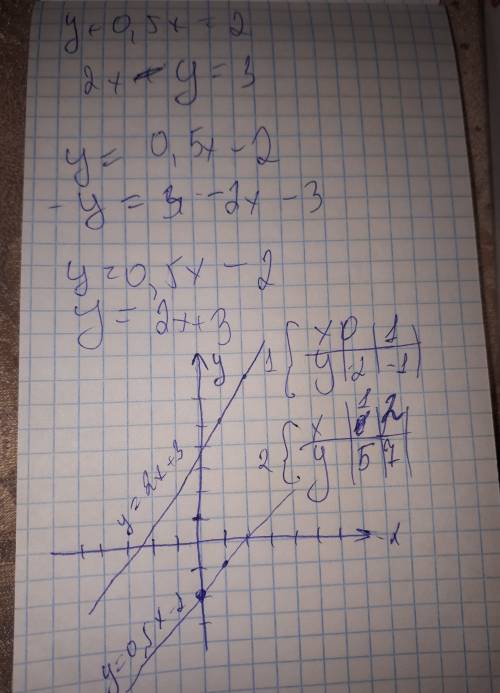 y - 0,5x = 2
2x - y = 3
y = 0,5x - 2
-y = -2x - 3
y = 0,5x - 2
y = 2x+3
1 { x 0 1
y -2 -1
2 { x 1 2
y 5 7
y
y = 2x+3
x
y=0,5x-2